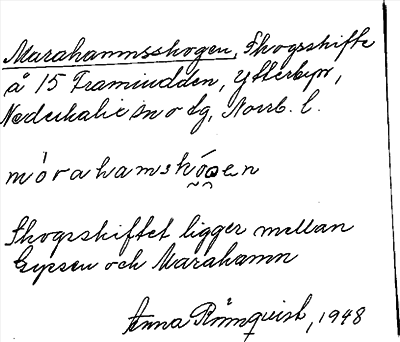 Marahamnsskogen, Skogsskifte
å 15 Framiudden, Ytterbyn,
Nederkalix sn o tg, Norrb. l.
mórahamskógen
Skogsskiftet ligger mellan
och Marahamn
Anna Rönnquist, 1948